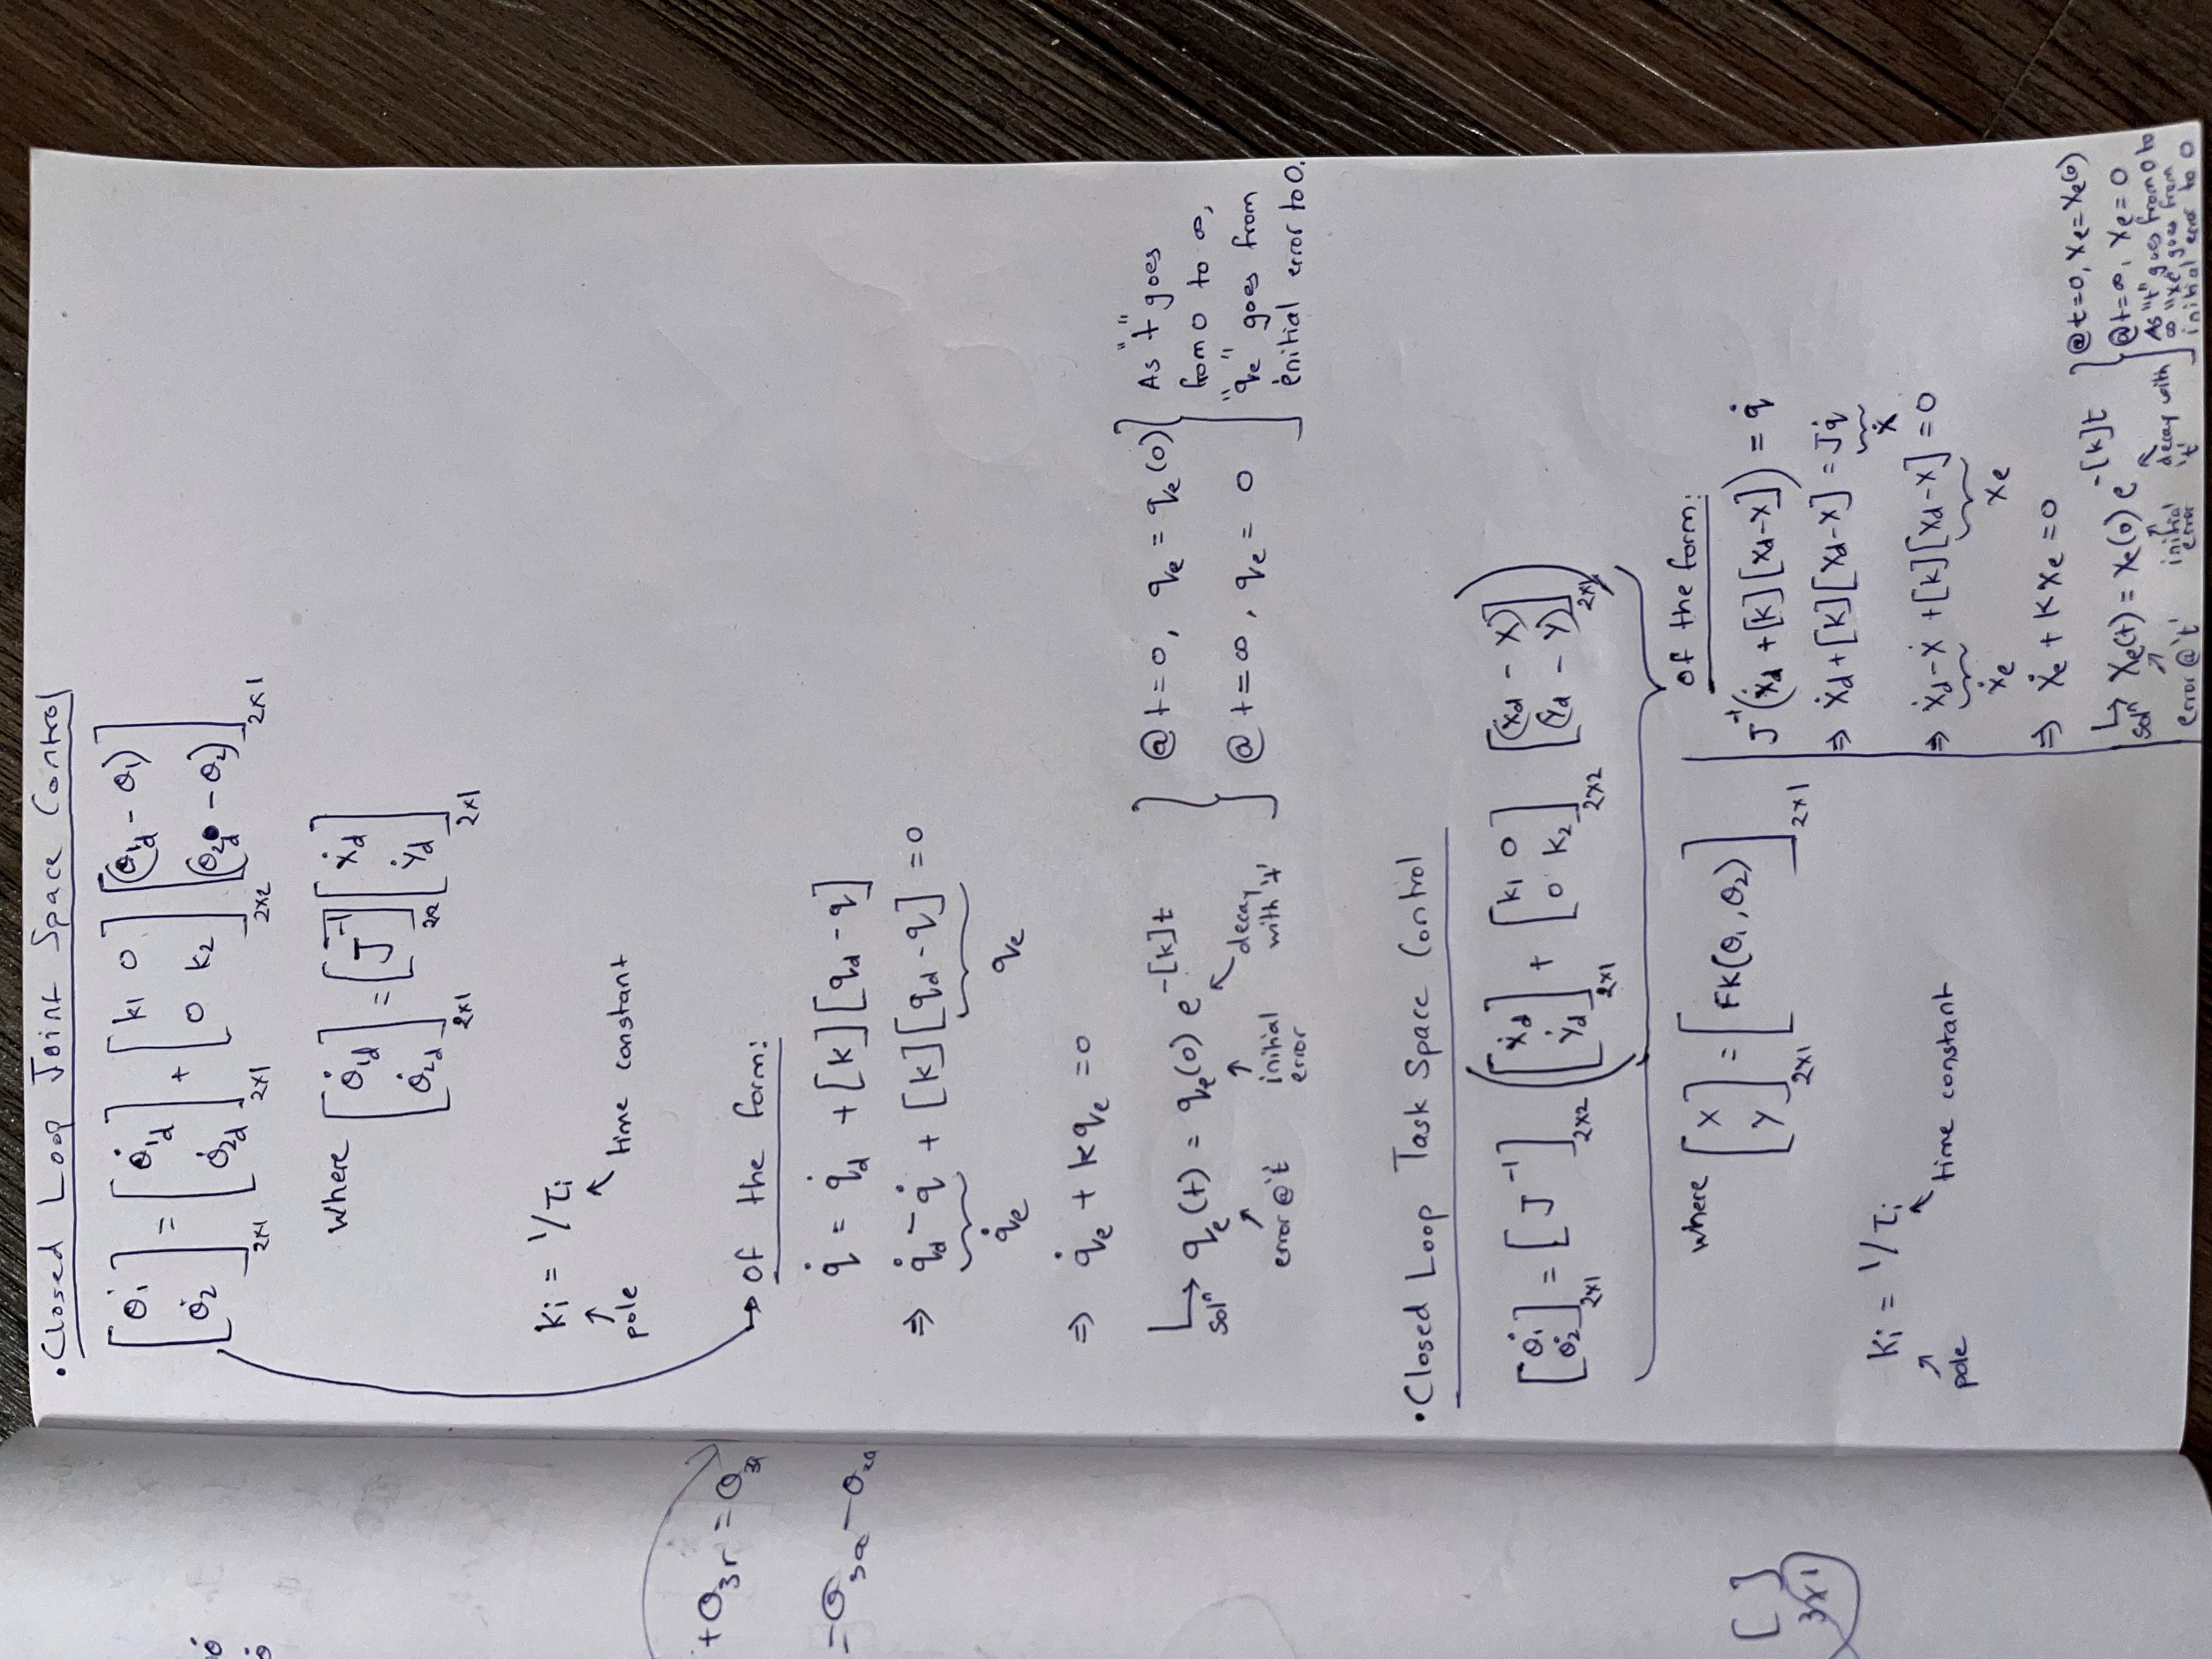 • Closed Loop Joint Space Control
[θ̇1 θ̇2]2x1 = [θ̇1d θ̇2d]2x1 + [k1 0 0 k2]2x2 [(θ1d - θ1) (θ2d - θ2)]2x1
where [θ̇1d θ̇2d]2x1 = [J⁻¹]2x2 [ẋd ẏd]2x1
Ki = 1/τi
pole
time constant
→ Of the form:
q̇ = q̇d + [k][qd - q]
⇒ q̇d - q̇ + [k][qd - q] = 0
q̇e qe
⇒ q̇e + kqe = 0
↳ soln qe(t) = qe(0) e^-[k]t
error@'t' initial error decay with 't'
@t=0, qe = qe(0)
@t=∞, qe = 0
As "t" goes
from 0 to ∞,
"qe" goes from
initial error to 0.
• Closed Loop Task Space Control
[θ̇1 θ̇2]2x1 = [J⁻¹]2x2 ([ẋd ẏd]2x1 + [k1 0 0 k2]2x2 [(xd - x) (yd - y)]2x1)
where [x y]2x1 = [FK(θ1, θ2)]2x1
Ki = 1/τi
pole
time constant
Of the form:
J⁻¹(ẋd + [k][xd-x]) = q̇
⇒ ẋd + [k][xd-x] = Jq̇
ẋ
⇒ ẋd - ẋ + [k][xd-x] = 0
ẋe xe
⇒ ẋe + kxe = 0
↳ soln xe(t) = xe(0) e^-[k]t
error@'t' initial error decay with 't'
@t=0, xe = xe(0)
@t=∞, xe = 0
As "t" goes from 0 to
∞ "xe" goes from
initial error to 0
+ θ3r = θ3a
= θ3a - θ2a
[ ]
3x1